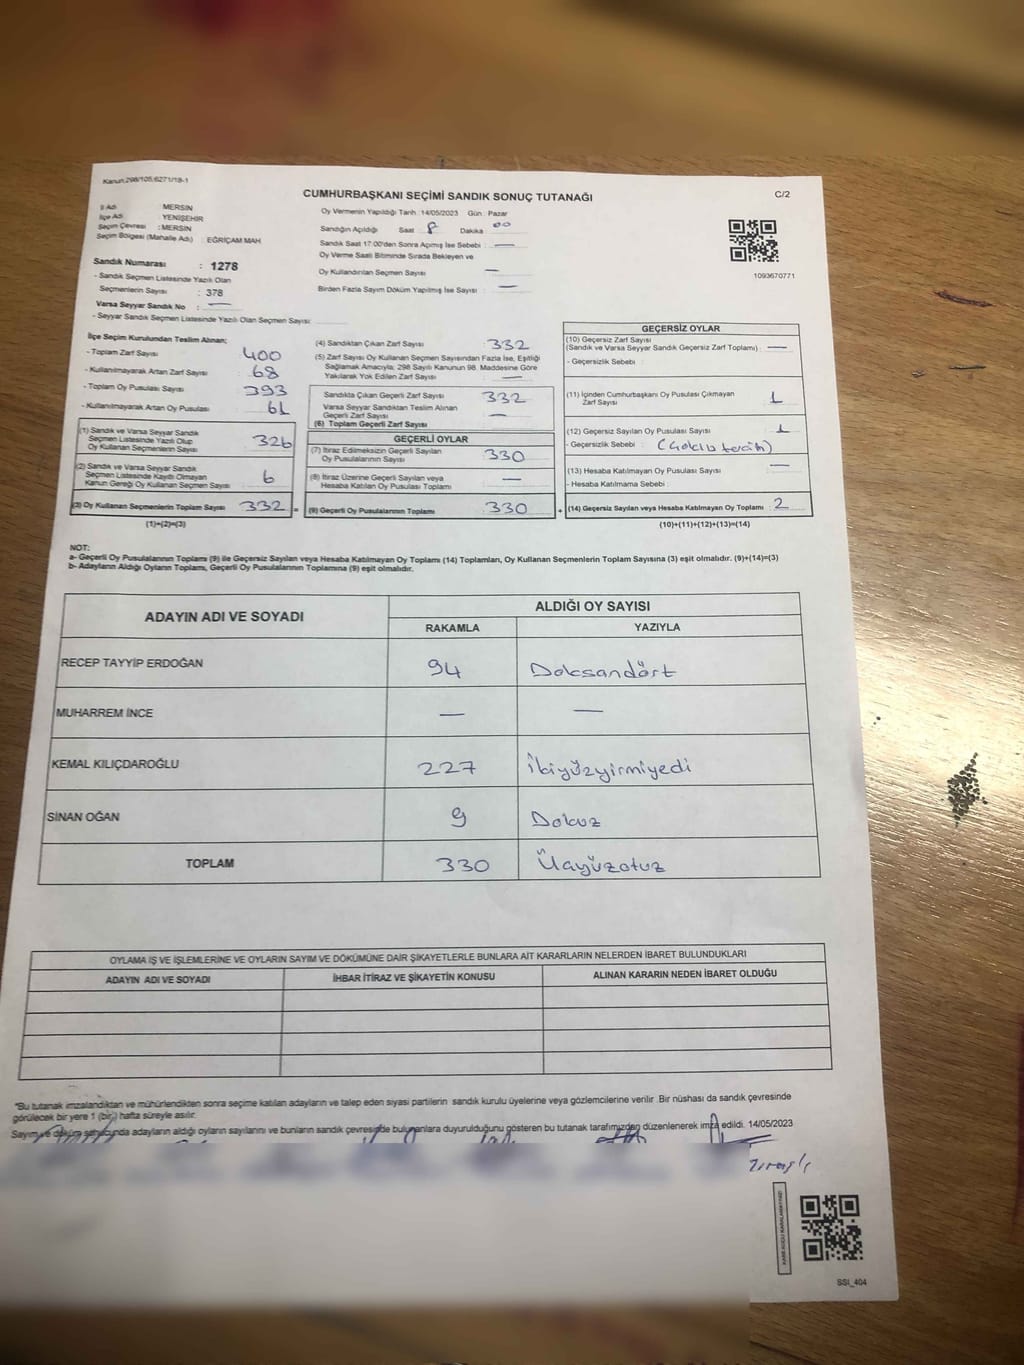 Kanun:298/105,6271/18-1
CUMHURBAŞKANI SEÇİMİ SANDIK SONUÇ TUTANAĞI
C/2
İl Adı : MERSİN
İlçe Adı : YENİŞEHİR
Seçim Çevresi : MERSİN
Seçim Bölgesi (Mahalle Adı) : EĞRİÇAM MAH
Sandık Numarası : 1278
- Sandık Seçmen Listesinde Yazılı Olan
Seçmenlerin Sayısı : 378
Varsa Seyyar Sandık No : —
- Seyyar Sandık Seçmen Listesinde Yazılı Olan Seçmen Sayısı:
Oy Vermenin Yapıldığı Tarih :14/05/2023 Gün : Pazar
Sandığın Açıldığı Saat : 8 Dakika : 00
Sandık Saat 17:00'den Sonra Açmış İse Sebebi : —
Oy Verme Saati Bitiminde Sırada Bekleyen ve
Oy Kullandırılan Seçmen Sayısı : —
Birden Fazla Sayım Döküm Yapılmış İse Sayısı : —
1093670771
İlçe Seçim Kurulundan Teslim Alınan;
- Toplam Zarf Sayısı : 400
- Kullanılmayarak Artan Zarf Sayısı : 68
- Toplam Oy Pusulası Sayısı : 393
- Kullanılmayarak Artan Oy Pusulası : 61
(1) Sandık ve Varsa Seyyar Sandık
Seçmen Listesinde Yazılı Olup
Oy Kullanan Seçmenlerin Sayısı : 326
(2) Sandık ve Varsa Seyyar Sandık
Seçmen Listesinde Kayıtlı Olmayan
Kanun Gereği Oy Kullanan Seçmen Sayısı : 6
(3) Oy Kullanan Seçmenlerin Toplam Sayısı : 332
(1)+(2)=(3)
(4) Sandıktan Çıkan Zarf Sayısı : 332
(5) Zarf Sayısı Oy Kullanan Seçmen Sayısından Fazla İse, Eşitliği
Sağlamak Amacıyla; 298 Sayılı Kanunun 98. Maddesine Göre
Yakılarak Yok Edilen Zarf Sayısı : —
Sandıkta Çıkan Geçerli Zarf Sayısı : 332
Varsa Seyyar Sandıktan Teslim Alınan
Geçerli Zarf Sayısı : —
(6) Toplam Geçerli Zarf Sayısı :
GEÇERLİ OYLAR
(7) İtiraz Edilmeksizin Geçerli Sayılan
Oy Pusulalarının Sayısı : 330
(8) İtiraz Üzerine Geçerli Sayılan veya
Hesaba Katılan Oy Pusulası Toplamı : —
= (9) Geçerli Oy Pusulalarının Toplamı : 330
GEÇERSİZ OYLAR
(10) Geçersiz Zarf Sayısı
(Sandık ve Varsa Seyyar Sandık Geçersiz Zarf Toplamı) : —
- Geçersizlik Sebebi :
(11) İçinden Cumhurbaşkanı Oy Pusulası Çıkmayan
Zarf Sayısı : 1
(12) Geçersiz Sayılan Oy Pusulası Sayısı : 1
- Geçersizlik Sebebi : (Çoklu tercih)
(13) Hesaba Katılmayan Oy Pusulası Sayısı : —
- Hesaba Katılmama Sebebi :
+ (14) Geçersiz Sayılan veya Hesaba Katılmayan Oy Toplamı : 2
(10)+(11)+(12)+(13)=(14)
NOT:
a- Geçerli Oy Pusulalarının Toplamı (9) ile Geçersiz Sayılan veya Hesaba Katılmayan Oy Toplamı (14) Toplamları, Oy Kullanan Seçmenlerin Toplam Sayısına (3) eşit olmalıdır. (9)+(14)=(3)
b- Adayların Aldığı Oyların Toplamı, Geçerli Oy Pusulalarının Toplamına (9) eşit olmalıdır.
ADAYIN ADI VE SOYADI
ALDIĞI OY SAYISI
RAKAMLA YAZIYLA
RECEP TAYYİP ERDOĞAN 94 Doksandört
MUHARREM İNCE — —
KEMAL KILIÇDAROĞLU 227 İkiyüzyirmiyedi
SİNAN OĞAN 9 Dokuz
TOPLAM 330 Üçyüzotuz
OYLAMA İŞ VE İŞLEMLERİNE VE OYLARIN SAYIM VE DÖKÜMÜNE DAİR ŞİKAYETLERLE BUNLARA AİT KARARLARIN NELERDEN İBARET BULUNDUKLARI
ADAYIN ADI VE SOYADI İHBAR İTİRAZ VE ŞİKAYETİN KONUSU ALINAN KARARIN NEDEN İBARET OLDUĞU
*Bu tutanak imzalandıktan ve mühürlendikten sonra seçime katılan adayların ve talep eden siyasi partilerin sandık kurulu üyelerine veya gözlemcilerine verilir .Bir nüshası da sandık çevresinde
görülecek bir yere 1 (bir) hafta süreyle asılır.
Sayım ve döküm sonucunda adayların aldığı oyların sayılarını ve bunların sandık çevresinde bulunanlara duyurulduğunu gösteren bu tutanak tarafımızdan düzenlenerek imza edildi. 14/05/2023
SSI_404